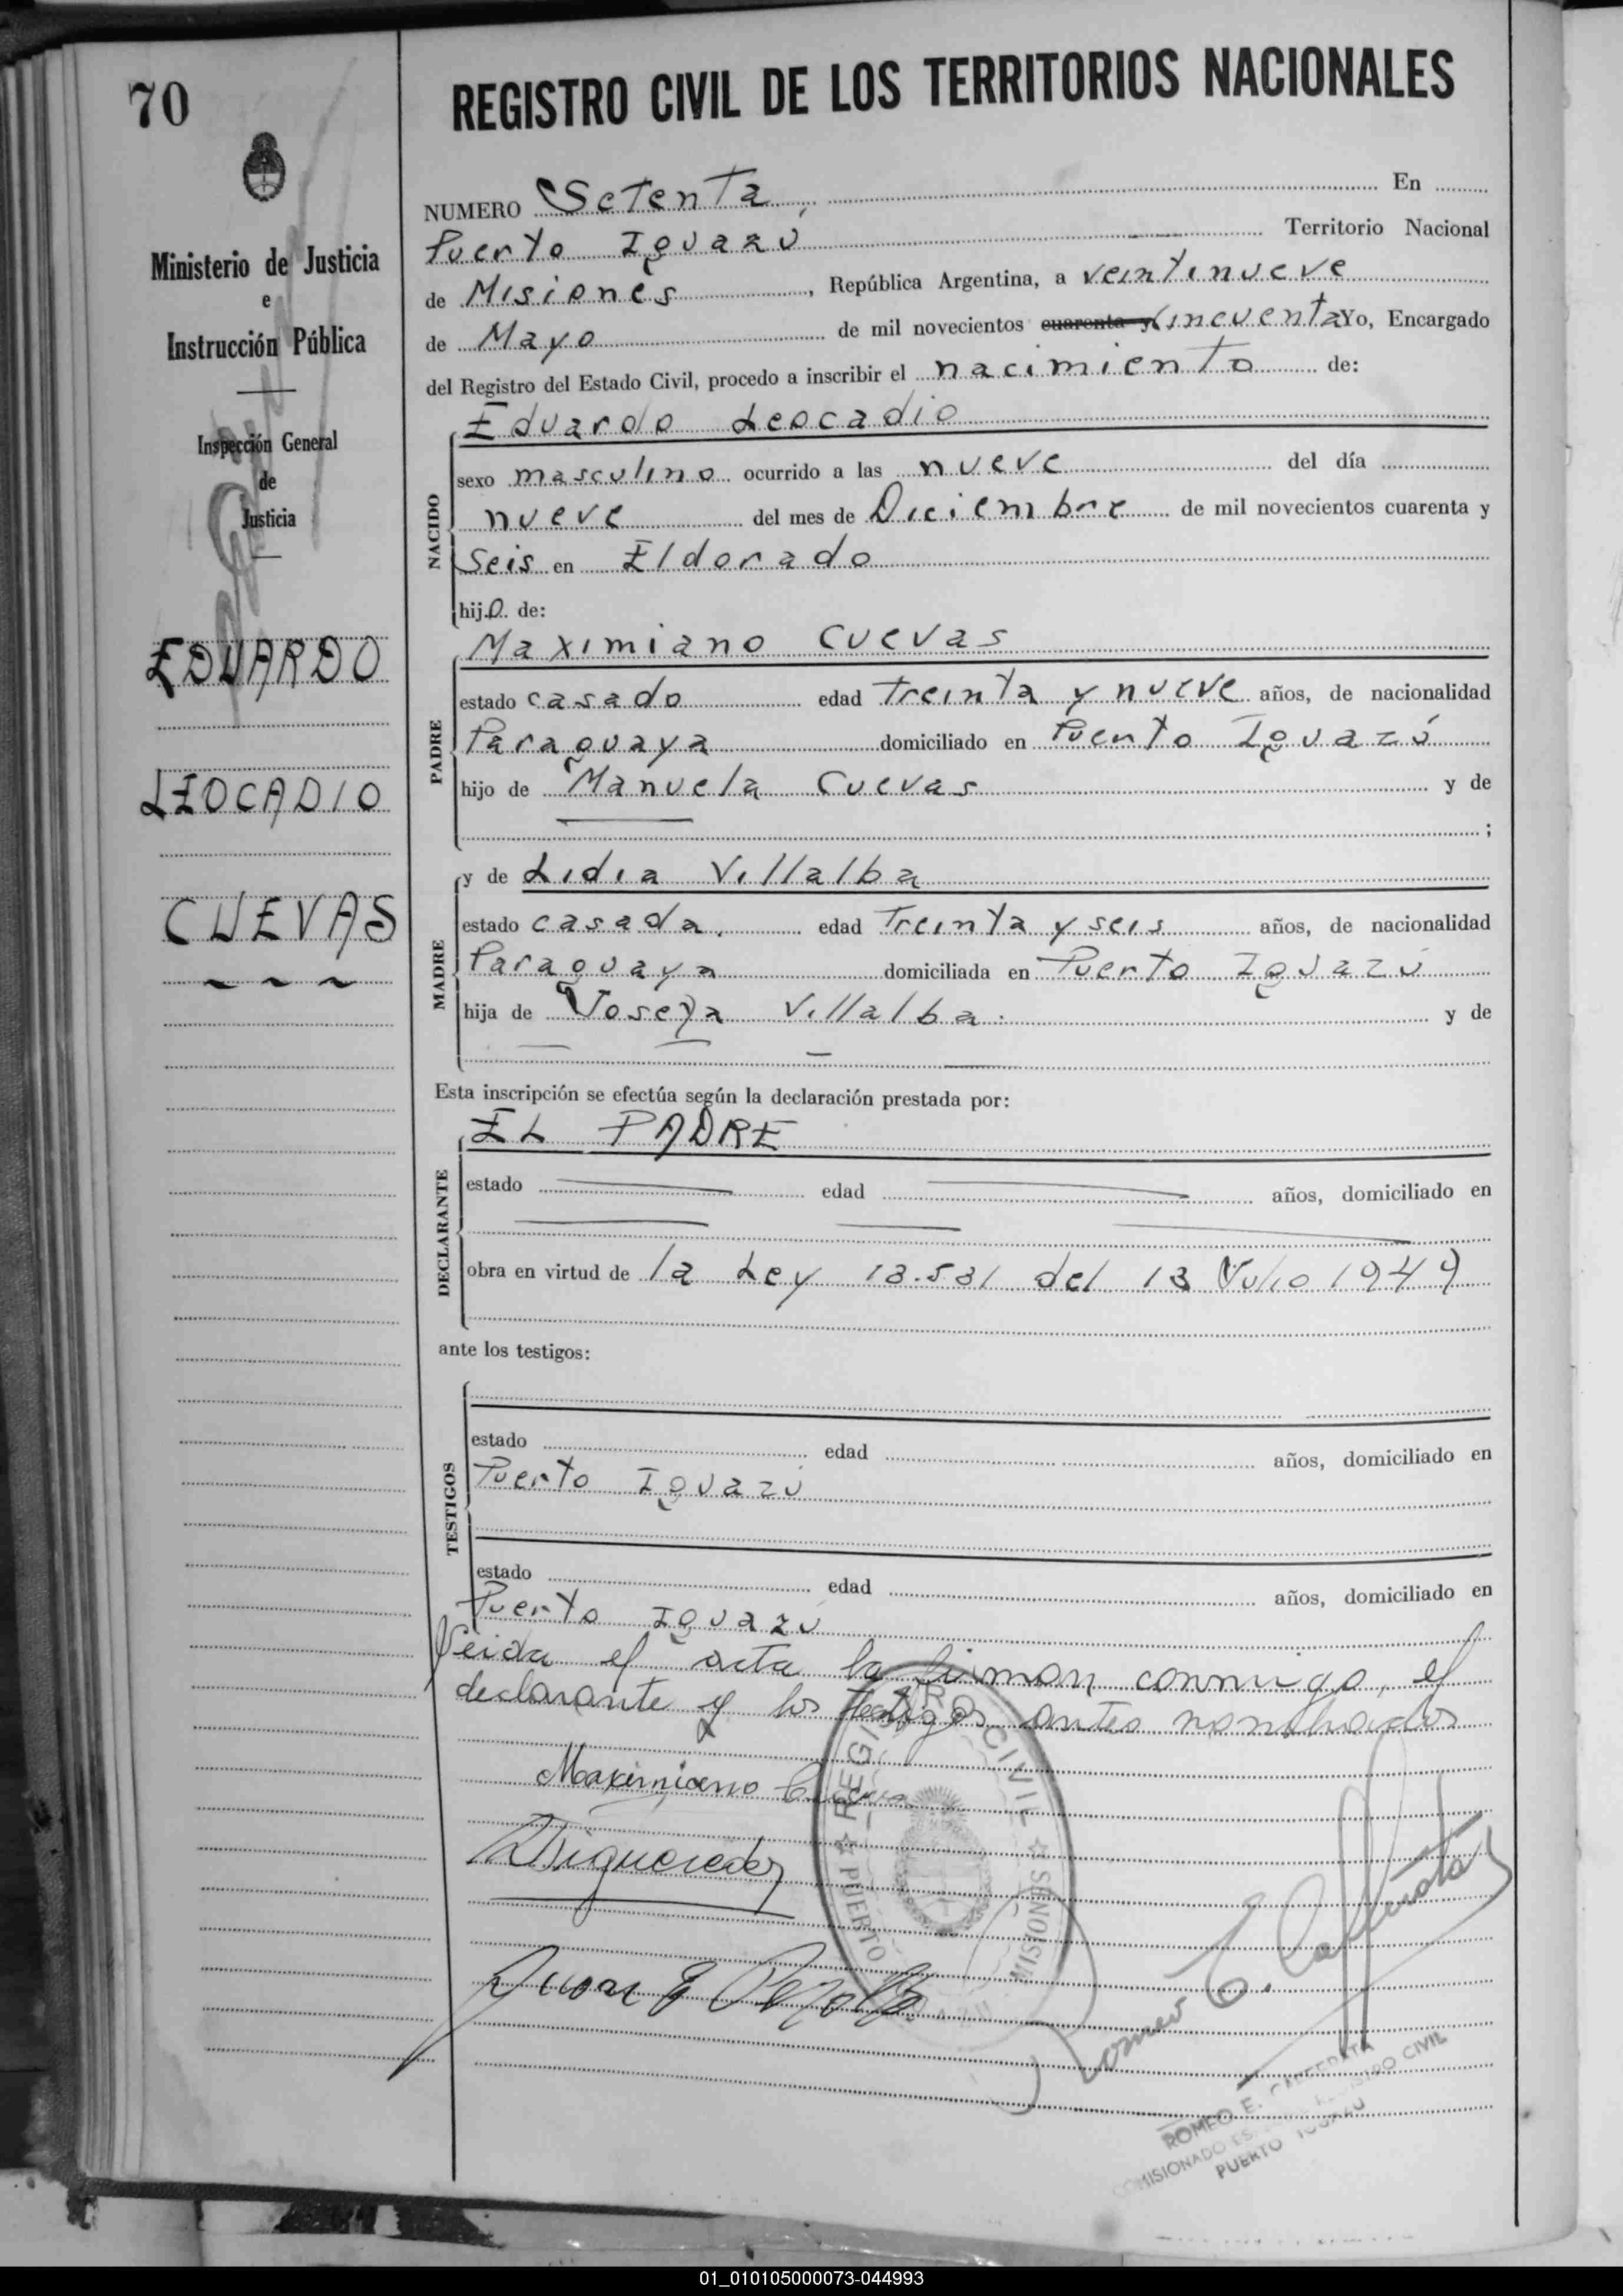 70
Ministerio de Justicia
e
Instrucción Pública
Inspección General
de
Justicia
EDUARDO
LEOCADIO
CUEVAS
REGISTRO CIVIL DE LOS TERRITORIOS NACIONALES
NUMERO Setenta, En
Puerto Iguazú Territorio Nacional
de Misiones, República Argentina, a veintinueve
de Mayo de mil novecientos cuarenta y Cincuenta Yo, Encargado
del Registro del Estado Civil, procedo a inscribir el nacimiento de:
Eduardo Leocadio
NACIDO
sexo masculino ocurrido a las nueve del día
nueve del mes de Diciembre de mil novecientos cuarenta y
Seis en Eldorado
hijo de:
Maximiano Cuevas
PADRE
estado casado edad Treinta y nueve años, de nacionalidad
Paraguaya domiciliado en Puerto Iguazú
hijo de Manuela Cuevas y de
;
y de Lidia Villalba
MADRE
estado casada. edad Treinta y seis años, de nacionalidad
Paraguaya domiciliada en Puerto Iguazú
hija de Josefa Villalba. y de
Esta inscripción se efectúa según la declaración prestada por:
EL PADRE
DECLARANTE
estado edad años, domiciliado en
obra en virtud de la Ley 13.531 del 13 Julio 1949
ante los testigos:
TESTIGOS
estado edad años, domiciliado en
Puerto Iguazú
estado edad años, domiciliado en
Puerto Iguazú
Leida el acta la firman conmigo, el
declarante y los testigos antes nombrados
Maximiano Cuevas
REGISTRO CIVIL
PUERTO IGUAZU
MISIONES
Juan
Romeo E.
ROMEO E.
COMISIONADO REGISTRO CIVIL
PUERTO IGUAZU
01_010105000073-044993